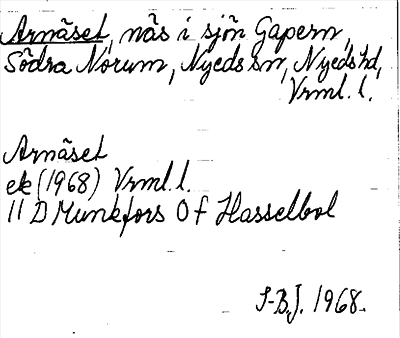 Arnäset, näs i sjön Gapern,
Södra Norum, Nyeds sn, Nyeds hd,
Vrml. l.
Arnäset
ek (1968) Vrml. l.
11 D Munkfors 0 f Hasselbol
S-B.J. 1968.